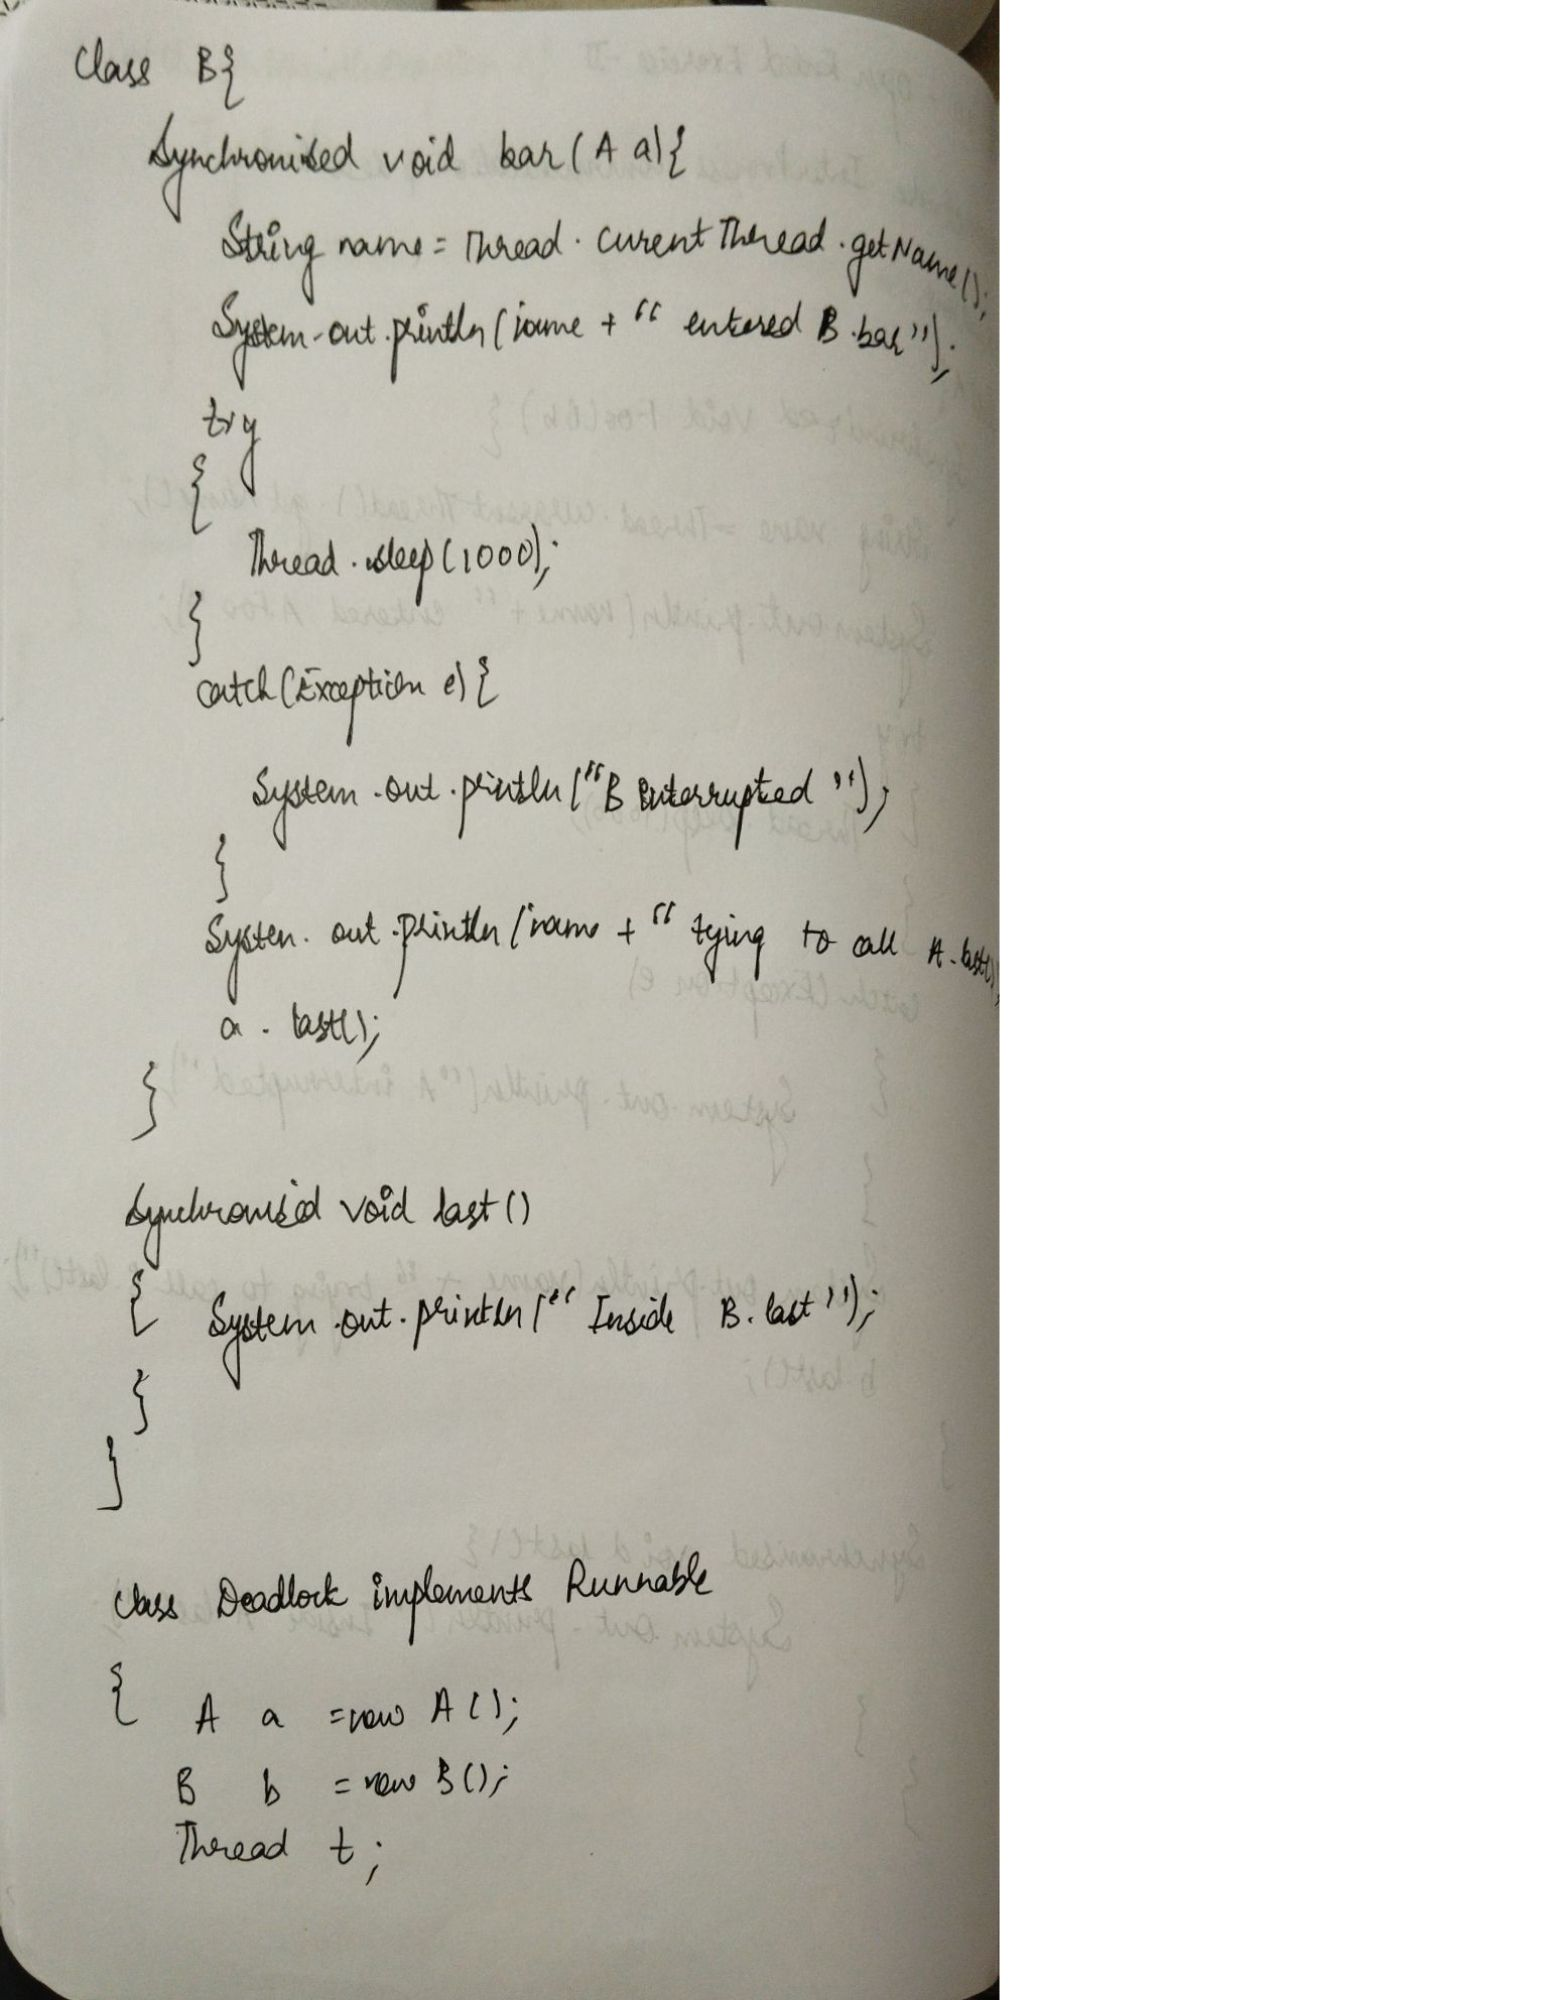 Class B{
Synchronised void bar(A a){
String name = Thread.curentThread.getName();
System.out.println(name + " entered B.bar");
try
{
Thread.sleep(1000);
}
catch(Exception e){
System.out.println("B interrupted");
}
System.out.println(name + " tying to call A.last();
a.last();
}
Synchronised void last()
{ System.out.println("Inside B.last");
}
}
class Deadlock implements Runnable
{ A a = new A();
B b = new B();
Thread t;